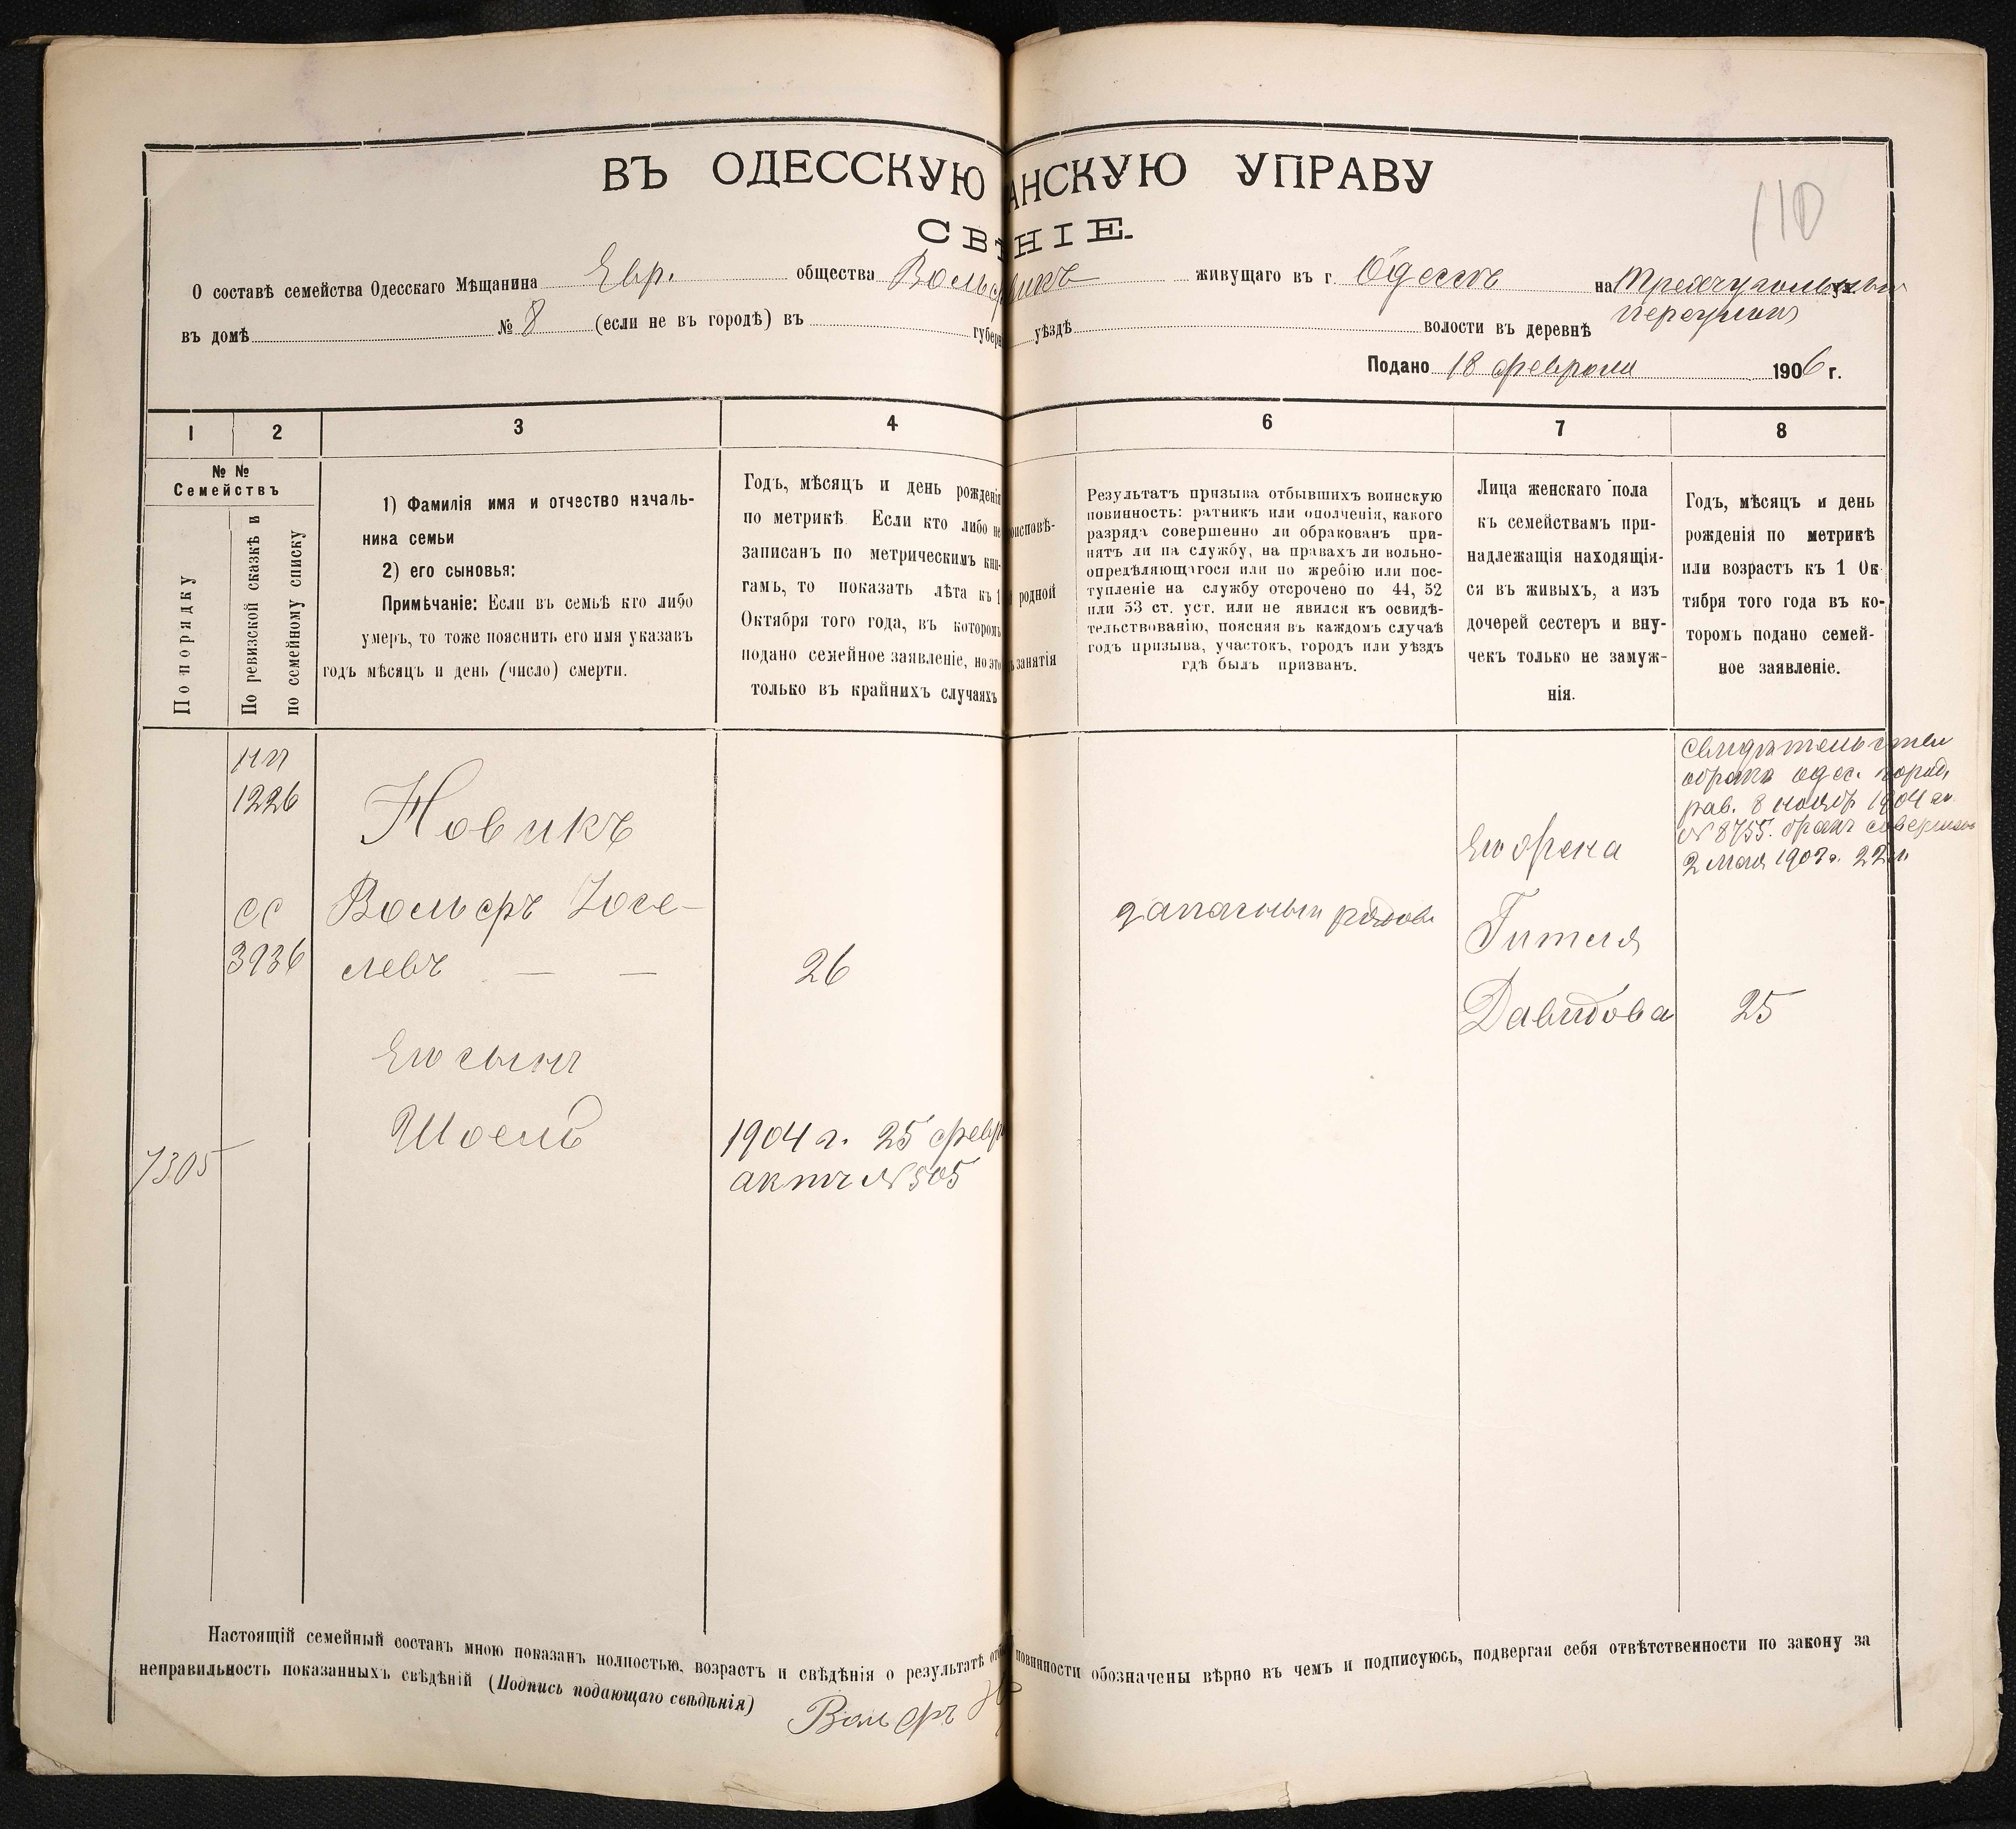 ВЪ ОДЕССКУЮ АНСКУЮ УПРАВУ
110
СВѢНІЕ.
О составѣ семейства Одесскаго Мѣщанина Евр. общества Вольф викъ живущаго въ г. Одессѣ на Трехугольномъ
переулкѣ
въ домѣ № 8 (если не въ городѣ) въ губерн уѣздѣ волости въ деревнѣ
Подано 18 февраля 1906 г.
1 2 3 4 6 7 8
№ №
Семействъ
По порядку
По ревизской сказкѣ и
по семейному списку
1) Фамилія имя и отчество началь-
ника семьи
2) его сыновья:
Примѣчаніе: Если въ семьѣ кто либо
умеръ, то тоже пояснить его имя указавъ
годъ мѣсяцъ и день (число) смерти.
Годъ, мѣсяцъ и день рожденія
по метрикѣ Если кто либо не
записанъ по метрическимъ кни-
гамъ, то показать лѣта къ 1
Октября того года, въ которомъ
подано семейное заявленіе, но это
только въ крайнихъ случаяхъ
оисповѣ-
родной
занятія
Результатъ призыва отбывшихъ воинскую
повинность: ратникъ или ополченія, какого
разряда совершенно ли обракованъ при-
нятъ ли на службу, на правахъ ли вольно-
опредѣляющагося или по жребію или пос-
тупленіе на службу отсрочено по 44, 52
или 53 ст. уст. или не явился къ освидѣ-
тельствованію, поясняя въ каждомъ случаѣ
годъ призыва, участокъ, городъ или уѣздъ
гдѣ былъ призванъ.
Лица женскаго пола
къ семействамъ при-
надлежащія находящія-
ся въ живыхъ, а изъ
дочерей сестеръ и вну-
чекъ только не замуж-
нія.
Годъ, мѣсяцъ и день
рожденія по метрикѣ
или возрастъ къ 1 Ок-
тября того года въ ко-
торомъ подано семей-
ное заявленіе.
нп
1226
Новикъ
сс
3936
Вольфъ Іосе-
левъ — —
26
Его сынъ
Шоель
1904 г. 25 февр
актъ № 505
7305
запасный рядов
Его жена
Гитля
Давидова
25
свидѣтельство
одес. город.
рав. 8 ноябр 1904 г.
№ 8755. бракъ совершенъ
2 мая 1903 г. 22
Настоящій семейный составъ мною показанъ полностью, возрастъ и свѣдѣнія о результатѣ отб повинности обозначены вѣрно въ чемъ и подписуюсь, подвергая себя отвѣтственности по закону за
неправильность показанныхъ свѣдѣній (Подпись подающаго свѣдѣнія)
Вольфъ